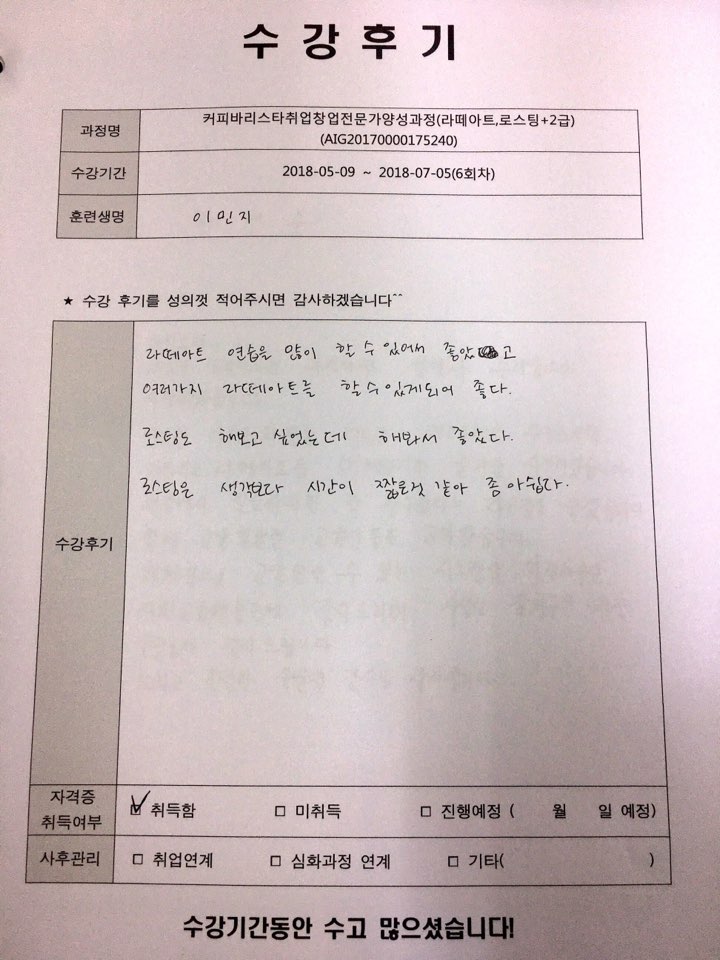 수 강 후 기
과정명
커피바리스타취업창업전문가양성과정(라떼아트,로스팅+2급)
(AIG20170000175240)
수강기간
2018-05-09 ~ 2018-07-05(6회차)
훈련생명
이민지
★ 수강 후기를 성의껏 적어주시면 감사하겠습니다^^
라떼아트 연습을 많이 할 수 있어서 좋았고
여러가지 라떼아트를 할 수 있게되어 좋다.
로스팅도 해보고 싶었는데 해봐서 좋았다.
로스팅은 생각보다 시간이 짧은것 같아 좀 아쉽다.
수강후기
자격증
취득여부
☑ 취득함 □ 미취득 □ 진행예정 ( 월 일 예정)
사후관리
□ 취업연계 □ 심화과정 연계 □ 기타( )
수강기간동안 수고 많으셨습니다!